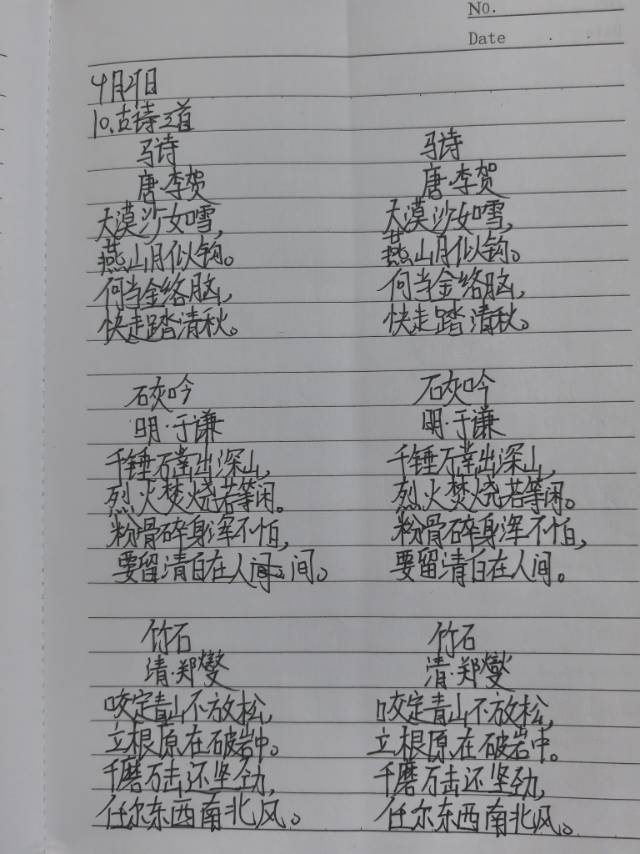 No.
Date
4月 日
10.古诗三首
马诗
唐·李贺
大漠沙如雪，
燕山月似钩。
何当金络脑，
快走踏清秋。
石灰吟
明·于谦
千锤万凿出深山，
烈火焚烧若等闲。
粉骨碎身浑不怕，
要留清白在人间。
竹石
清·郑燮
咬定青山不放松，
立根原在破岩中。
千磨万击还坚劲，
任尔东西南北风。
马诗
唐·李贺
大漠沙如雪，
燕山月似钩。
何当金络脑，
快走踏清秋。
石灰吟
明·于谦
千锤万凿出深山，
烈火焚烧若等闲。
粉骨碎身浑不怕，
要留清白在人间。
竹石
清·郑燮
咬定青山不放松，
立根原在破岩中。
千磨万击还坚劲，
任尔东西南北风。